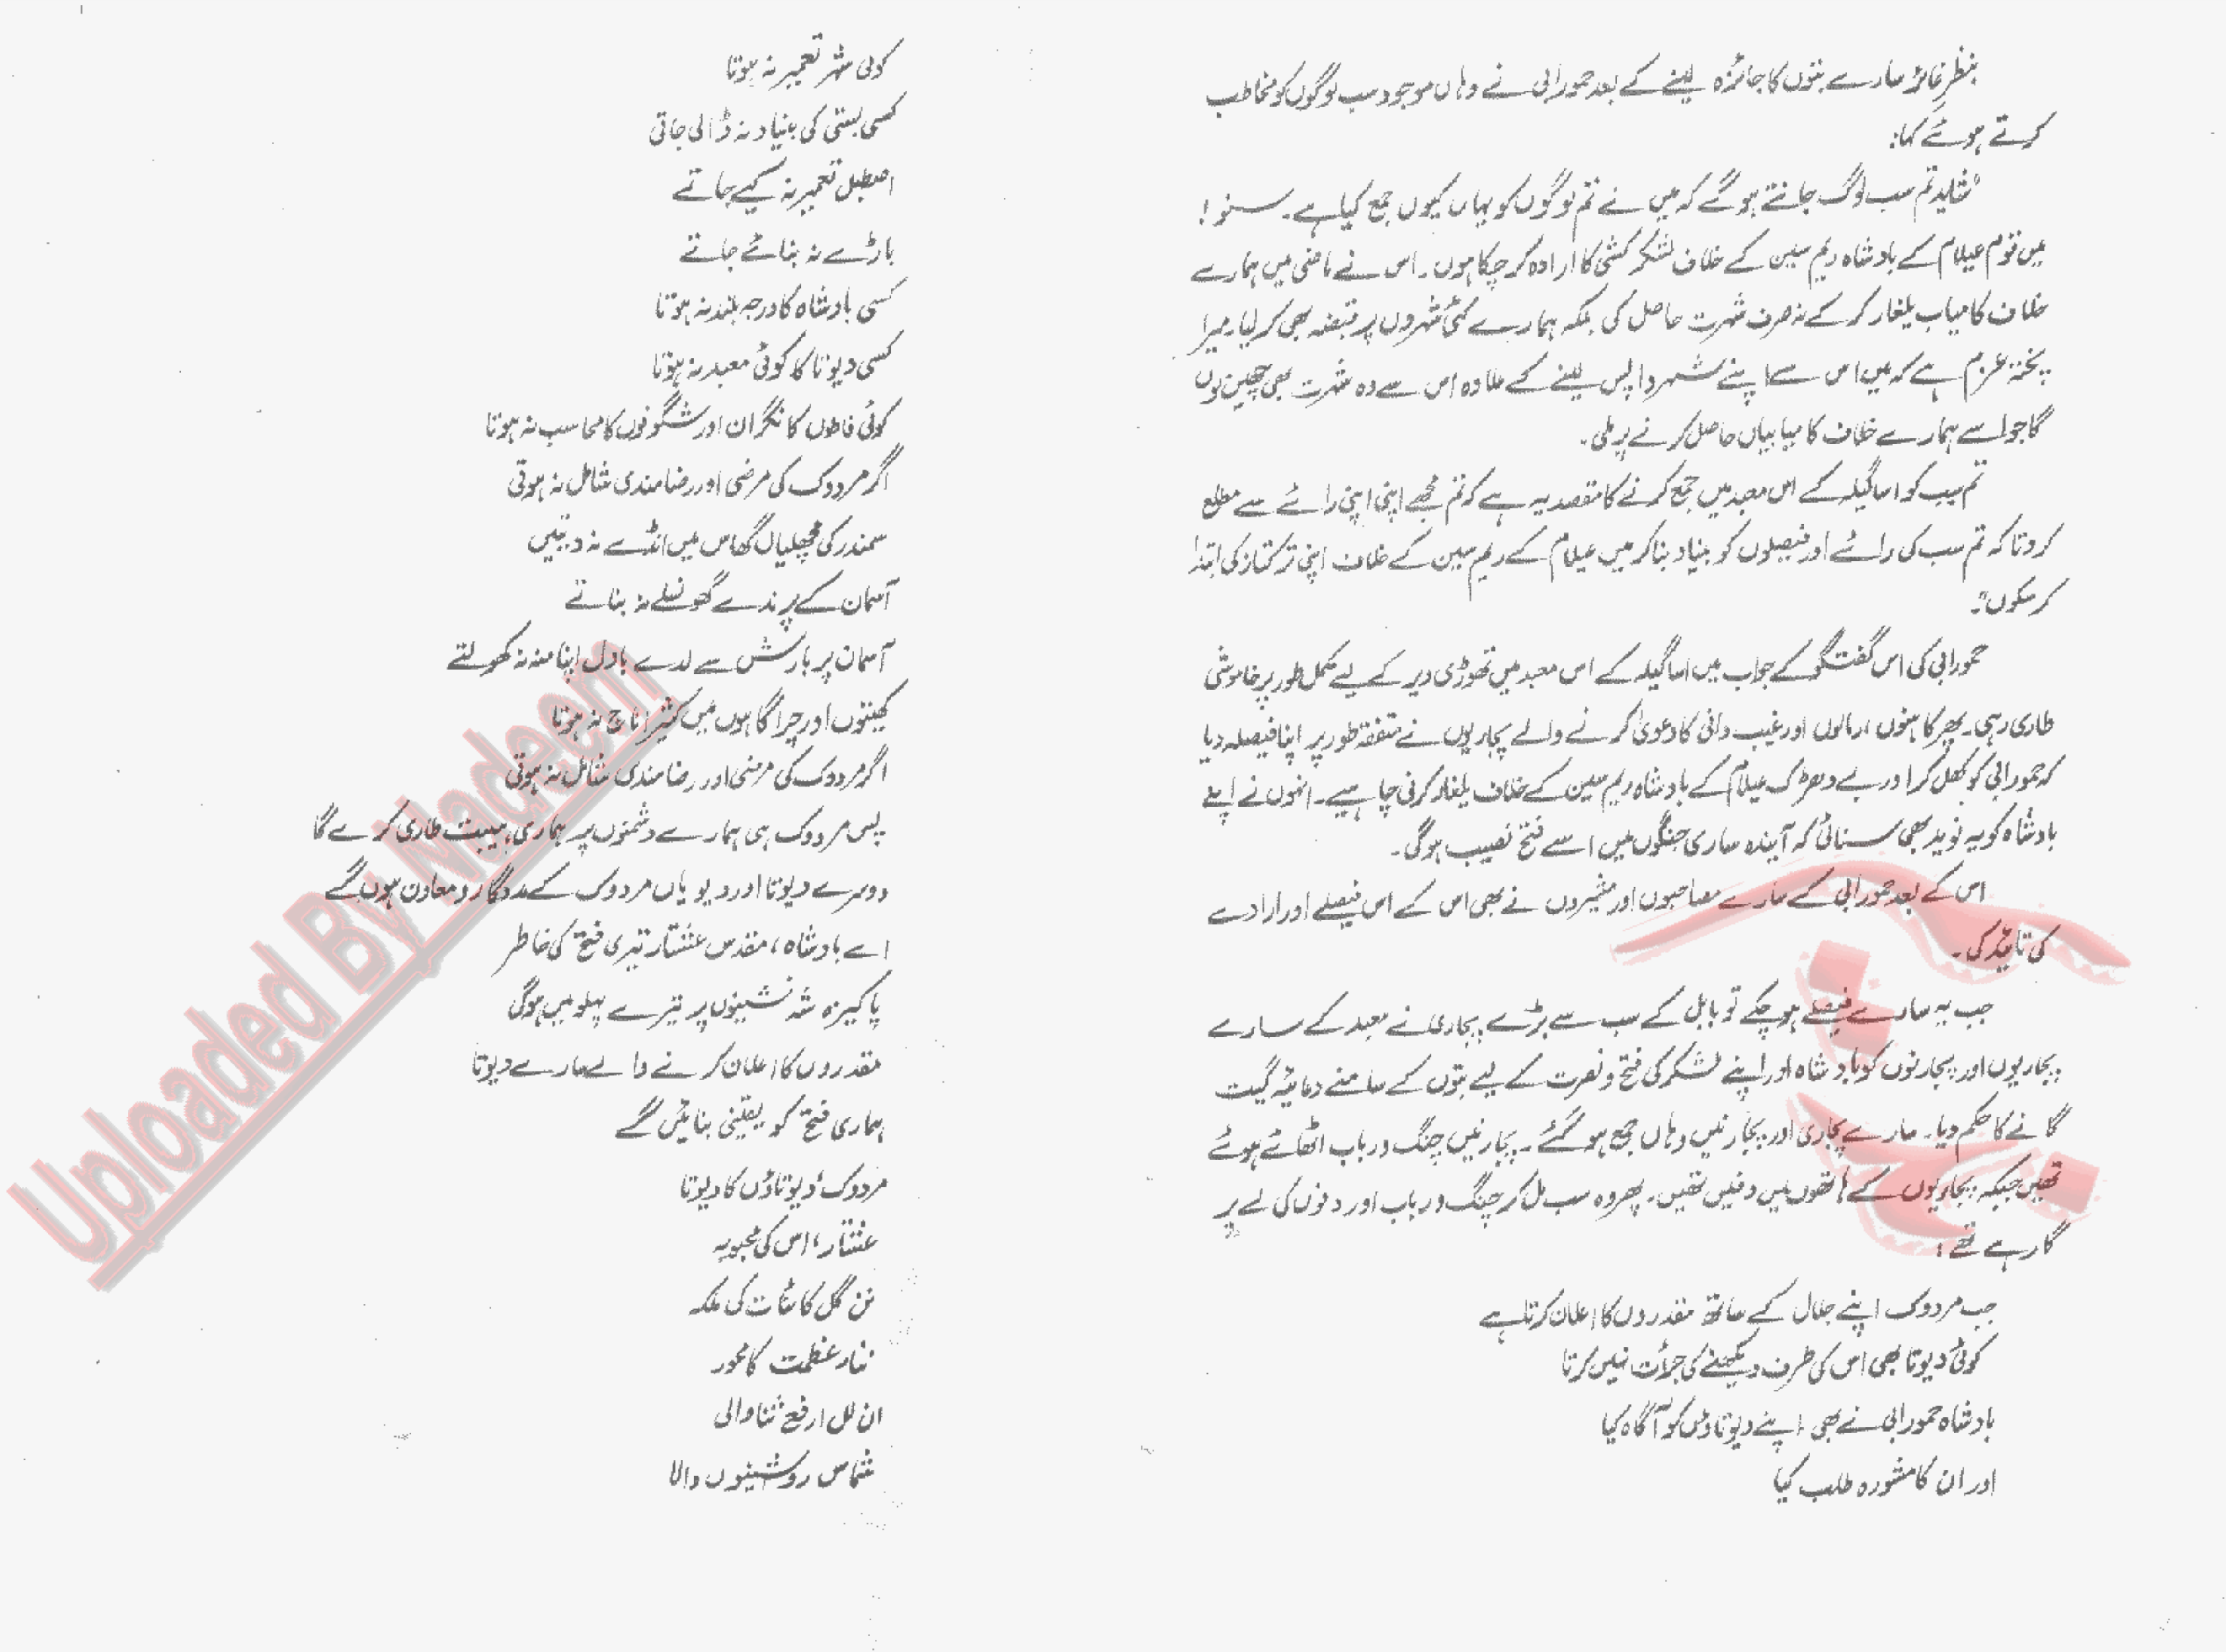 بنظرِ غائر سارے بتوں کا جائزہ لینے کے بعد حمورابی نے وہاں موجود سب لوگوں کو مخاطب
کرتے ہوئے کہا:
"شاید تم سب لوگ جانتے ہو گے کہ میں نے تم لوگوں کو یہاں کیوں جمع کیا ہے۔ سنو!
میں قوم عیلام کے بادشاہ ریم سین کے خلاف لشکر کشی کا ارادہ کر چکا ہوں۔ اس نے ماضی میں ہمارے
خلاف کامیاب یلغار کر کے نہ صرف شہرت حاصل کی بلکہ ہمارے کئی شہروں پر قبضہ بھی کر لیا۔ میرا
پختہ عزم ہے کہ میں اس سے اپنے شہر واپس لینے کے علاوہ اس سے وہ شہرت بھی چھین لوں
گا جو اسے ہمارے خلاف کامیابیاں حاصل کرنے پر ملی۔
تم سب کو اساگیلہ کے اس معبد میں جمع کرنے کا مقصد یہ ہے کہ تم مجھے اپنی اپنی رائے سے مطلع
کرو تا کہ تم سب کی رائے اور فیصلوں کو بنیاد بنا کر میں عیلام کے ریم سین کے خلاف اپنی ترکتاز کی ابتدا
کر سکوں"۔
حمورابی کی اس گفتگو کے جواب میں اساگیلہ کے اس معبد میں تھوڑی دیر کے لیے مکمل طور پر خاموشی
طاری رہی۔ پھر کاہنوں، رمالوں اور غیب دانی کا دعویٰ کرنے والے پجاریوں نے متفقہ طور پر اپنا فیصلہ دیا
کہ حمورابی کو کھل کر اور بے دھڑک عیلام کے بادشاہ ریم سین کے خلاف یلغار کرنی چاہیے۔ انہوں نے اپنے
بادشاہ کو یہ نوید بھی سنائی کہ آیندہ ساری جنگوں میں اسے فتح نصیب ہوگی۔
اس کے بعد حمورابی کے سارے مصاحبوں اور مشیروں نے بھی اس کے اس فیصلے اور ارادے
کی تائید کی۔
جب یہ سارے فیصلے ہو چکے تو بابل کے سب سے بڑے پجاری نے معبد کے سارے
پجاریوں اور پجارنوں کو بادشاہ اور اپنے لشکر کی فتح و نصرت کے لیے بتوں کے سامنے دعائیہ گیت
گانے کا حکم دیا۔ سارے پجاری اور پجارنیں وہاں جمع ہو گئے۔ پجارنیں چنگ و رباب اٹھائے ہوئے
تھیں جبکہ پجاریوں کے ہاتھوں میں دفیں تھیں۔ پھر وہ سب مل کر چنگ و رباب اور دفوں کی لے پر
گا رہے تھے:
جب مردوک اپنے جلال کے ساتھ مقدروں کا اعلان کرتا ہے
کوئی دیوتا بھی اس کی طرف دیکھنے کی جرأت نہیں کرتا
بادشاہ حمورابی نے بھی اپنے دیوتاؤں کو آگاہ کیا
اور ان کا مشورہ طلب کیا
کوئی شہر تعمیر نہ ہوتا
کسی بستی کی بنیاد نہ ڈالی جاتی
اصطبل تعمیر نہ کیے جاتے
باڑے نہ بنائے جاتے
کسی بادشاہ کا درجہ بلند نہ ہوتا
کسی دیوتا کا کوئی معبد نہ ہوتا
کوئی کا نگران اور شگوفوں کا محاسب نہ ہوتا
اگر مردوک کی مرضی اور رضامندی شامل نہ ہوتی
سمندر کی مچھلیاں گھاس میں انڈے نہ دیتیں
آسمان کے پرندے گھونسلے نہ بناتے
آسمان پر بارش سے لدے بادل اپنا منہ نہ کھولتے
کھیتوں اور چراگاہوں میں کثیر اناج نہ ہوتا
اگر مردوک کی مرضی اور رضامندی شامل نہ ہوتی
پس مردوک ہی ہمارے دشمنوں پر ہماری ہیبت طاری کرے گا
دوسرے دیوتا اور دیویاں مردوک کے مددگار و معاون ہوں گے
اے بادشاہ، مقدس عشتار تیری فتح کی خاطر
پاکیزہ شہ نشینوں پر تیرے پہلو میں ہوگی
مقدروں کا اعلان کرنے والے سارے دیوتا
ہماری فتح کو یقینی بنائیں گے
مردوک، دیوتاؤں کا دیوتا
عشتار، اس کی محبوبہ
نن گل کائنات کی ملکہ
ننار عظمت کا محور
ان لل ارفع ثنا والی
شماس روشنیوں والا
Uploaded By Nadeem